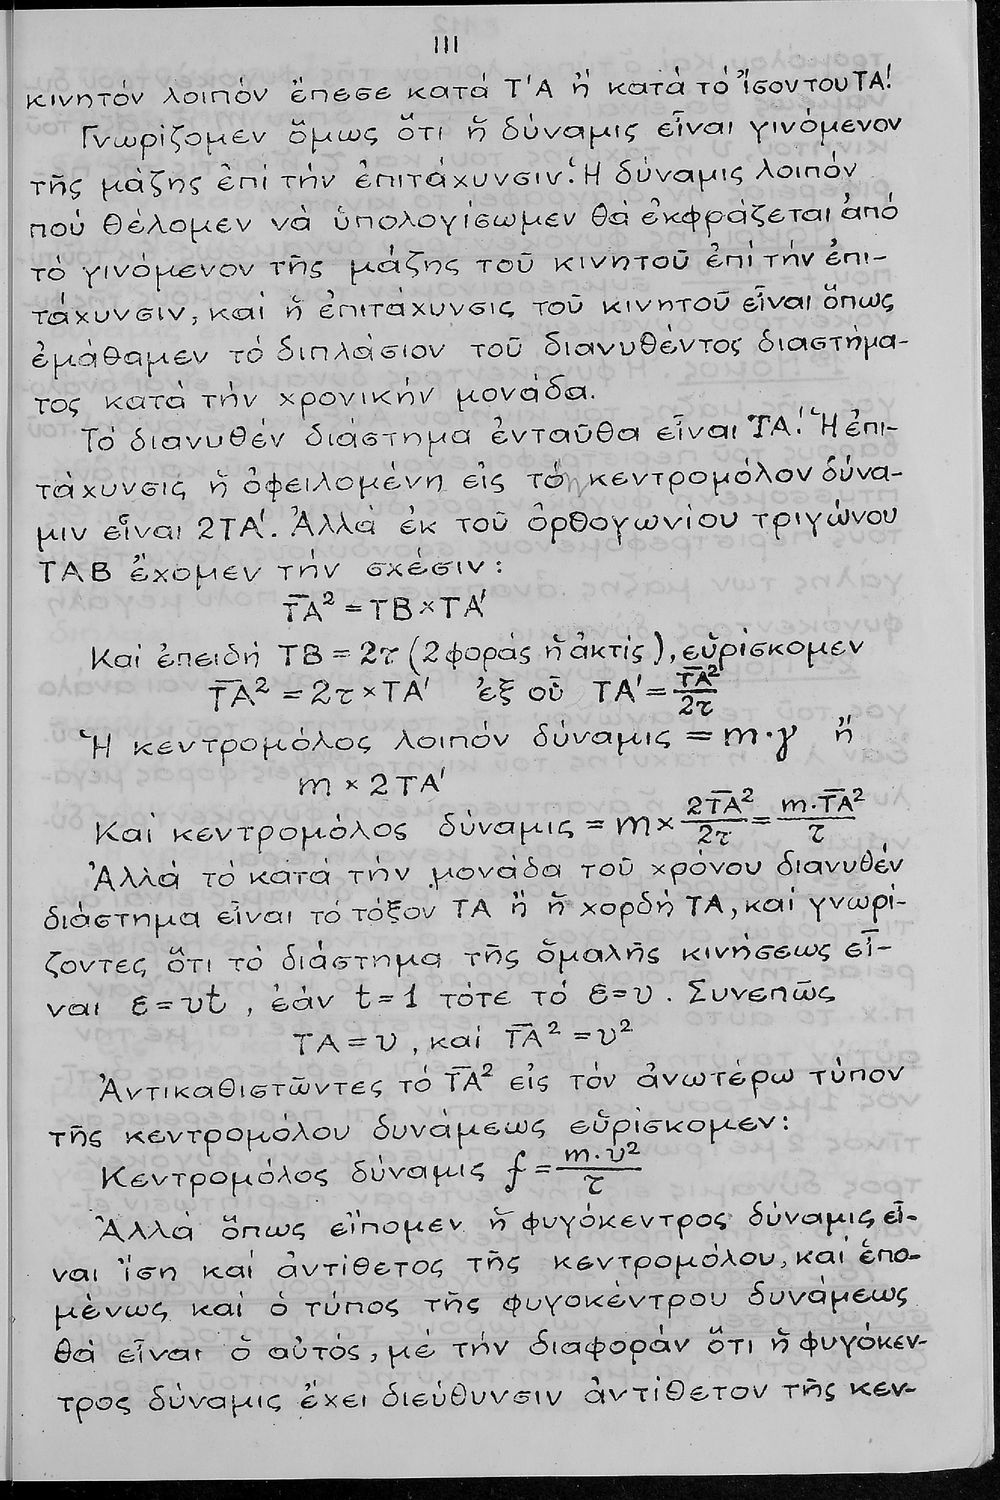 111
κινητόν λοιπόν ἔπεσε κατά Τ'Α ἤ κατά τό ἴσον του ΤΑ'.
Γνωρίζομεν ὅμως ὅτι ἡ δύναμις εἶναι γινόμενον
τῆς μάζης ἐπί τήν ἐπιτάχυνσιν. Ἡ δύναμις λοιπόν
πού θέλομεν νά ὑπολογίσωμεν θά ἐκφράζεται ἀπό
τό γινόμενον τῆς μάζης τοῦ κινητοῦ ἐπί τήν ἐπι-
τάχυνσιν, καί ἡ ἐπιτάχυνσις τοῦ κινητοῦ εἶναι ὅπως
ἐμάθαμεν τό διπλάσιον τοῦ διανυθέντος διαστήμα-
τος κατά τήν χρονικήν μονάδα.
Τό διανυθέν διάστημα ἐνταῦθα εἶναι ΤΑ'. Ἡ ἐπι-
τάχυνσις ἡ ὀφειλομένη εἰς τήν κεντρομόλον δύνα-
μιν εἶναι 2ΤΑ'. Ἀλλά ἐκ τοῦ ὀρθογωνίου τριγώνου
ΤΑΒ ἔχομεν τήν σχέσιν:
T̅A̅² = ΤΒ × ΤΑ'
Καί ἐπειδή ΤΒ = 2τ (2 φοράς ἡ ἀκτίς), εὑρίσκομεν
T̅A̅² = 2τ × ΤΑ' ἐξ οὗ ΤΑ' = T̅A̅²/2τ
Ἡ κεντρομόλος λοιπόν δύναμις = m·γ ἤ
m × 2ΤΑ'
Καί κεντρομόλος δύναμις = m × 2T̅A̅²/2τ = m·T̅A̅²/τ
Ἀλλά τό κατά τήν μονάδα τοῦ χρόνου διανυθέν
διάστημα εἶναι τό τόξον ΤΑ ἤ ἡ χορδή ΤΑ, καί γνωρί-
ζοντες ὅτι τό διάστημα τῆς ὁμαλῆς κινήσεως εἶ-
ναι ε = υt, ἐάν t = 1 τότε τό ε = υ. Συνεπῶς
ΤΑ = υ, καί T̅A̅² = υ²
Ἀντικαθιστῶντες τό T̅A̅² εἰς τόν ἀνωτέρω τύπον
τῆς κεντρομόλου δυνάμεως εὑρίσκομεν:
Κεντρομόλος δύναμις f = m·υ²/τ
Ἀλλά ὅπως εἴπομεν ἡ φυγόκεντρος δύναμις εἶ-
ναι ἴση καί ἀντίθετος τῆς κεντρομόλου, καί ἑπο-
μένως καί ὁ τύπος τῆς φυγοκέντρου δυνάμεως
θά εἶναι ὁ αὐτός, μέ τήν διαφοράν ὅτι ἡ φυγόκεν-
τρος δύναμις ἔχει διεύθυνσιν ἀντίθετον τῆς κεν-